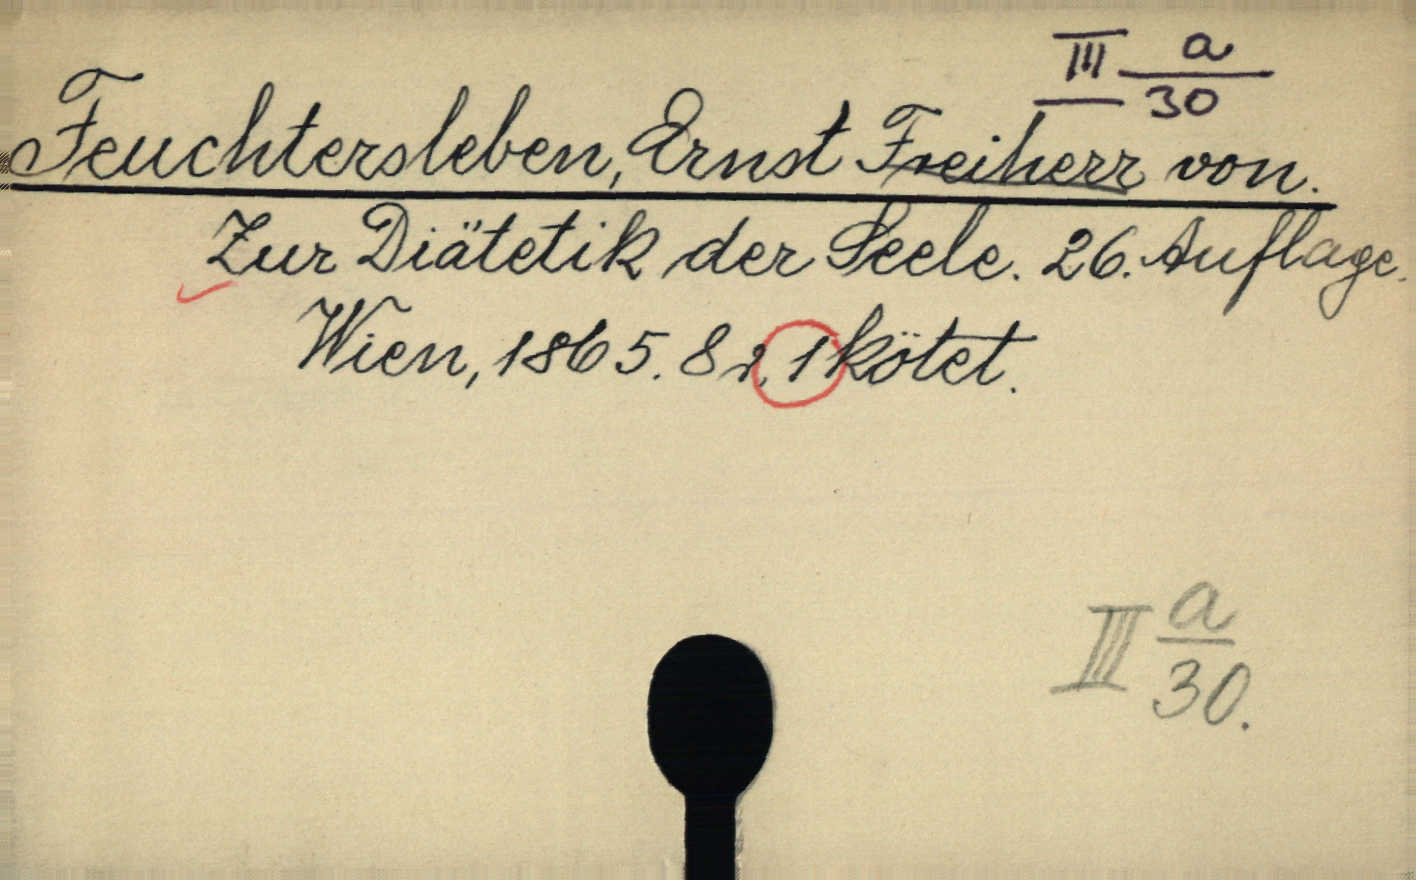 III a/30
Feuchtersleben, Ernst Freiherr von.
Zur Diätetik der Seele. 26. Auflage.
Wien, 1865. 8r, 1 kötet.
III a/30.